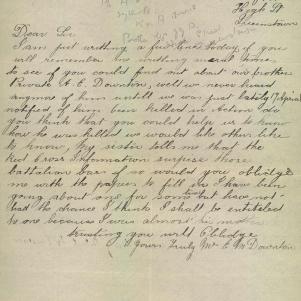 High St
Queenstown
Dear Sir
I am just writing a few lines today if you
will remember me writing several times
to see if you could find out about our brother
Private A. E. Downton, well we never heard
anymore of him untill we was just lately
notified of him been killed in Action. do
you think that you could help us to know
how he was killed we would like other like
to know, my sister tells me that the
Red Cross Information surpose those
battalion bars if so would you oblidge
me with the papers to fill in I have been
going about one for some time but have not
had the chance I think I shall be entitled
to one because I was almost his mother
trusting you will Oblidge
Yours Truly Mrs E M Downton